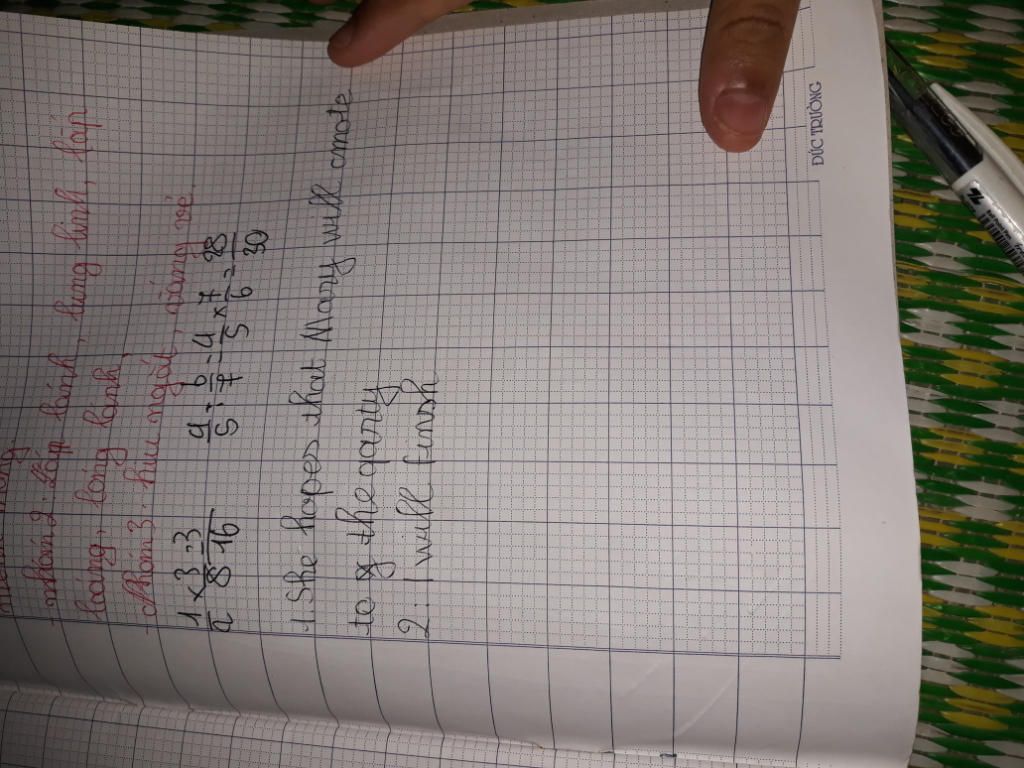 nhóm 2: lấp lánh, lung linh, lấp
loáng, long lanh
nhóm 3: hiu ngắt, vắng vẻ
1/2 × 3/8 = 3/16 4/5 : 6/7 = 4/5 × 7/6 = 28/30
1. She hopes that Mary will
to the party
2: I will finish
ĐỨC TRƯỜNG